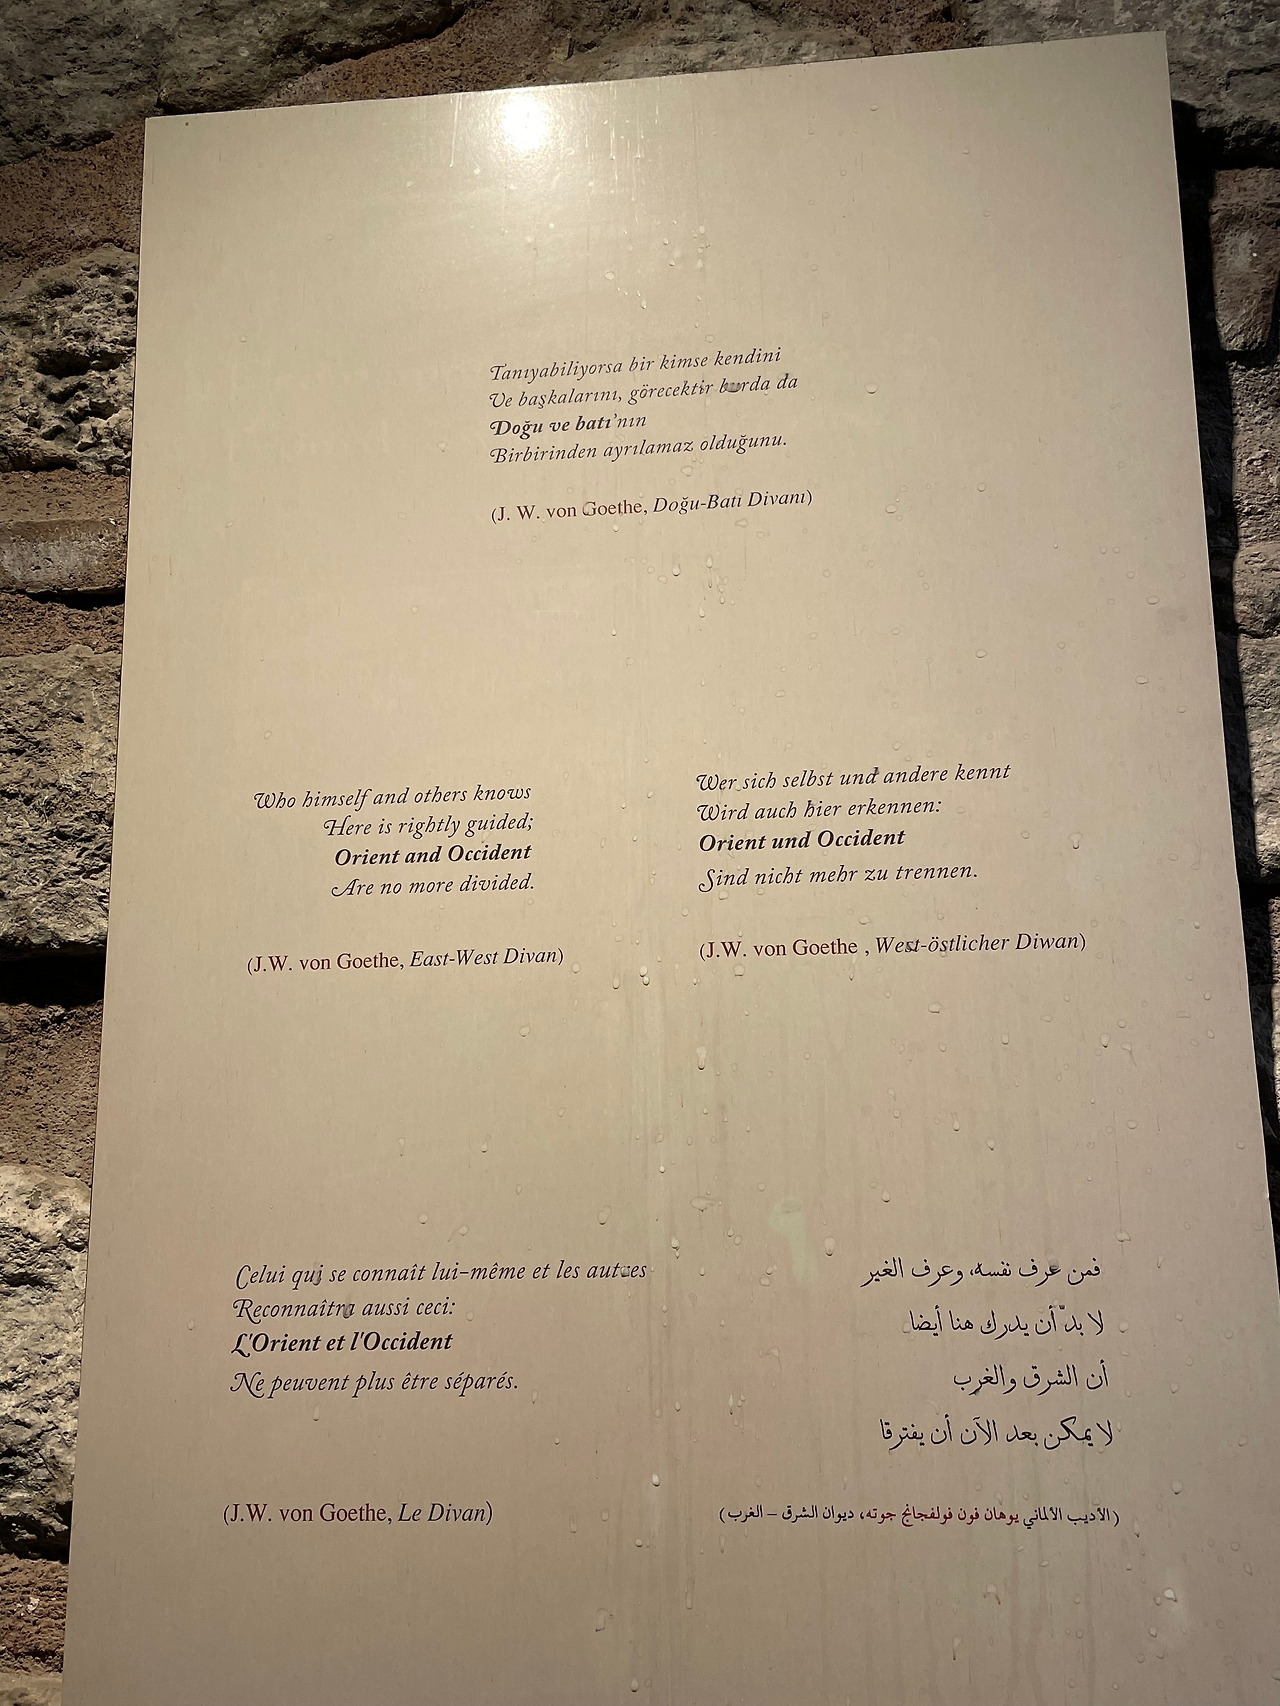 Tanıyabiliyorsa bir kimse kendini
Ve başkalarını, görecektir burda da
Doğu ve batı'nın
Birbirinden ayrılamaz olduğunu.
(J. W. von Goethe, Doğu-Batı Divanı)
Who himself and others knows
Here is rightly guided;
Orient and Occident
Are no more divided.
(J.W. von Goethe, East-West Divan)
Wer sich selbst und andere kennt
Wird auch hier erkennen:
Orient und Occident
Sind nicht mehr zu trennen.
(J.W. von Goethe , West-östlicher Diwan)
Celui qui se connaît lui-même et les autres
Reconnaîtra aussi ceci:
L'Orient et l'Occident
Ne peuvent plus être séparés.
(J.W. von Goethe, Le Divan)
فمن عرف نفسه، وعرف الغير
لا بدّ أن يدرك هنا أيضا
أن الشرق والغرب
لا يمكن بعد الآن أن يفترقا
(الأديب الألماني يوهان فون فولفجانج جوته، ديوان الشرق – الغرب)